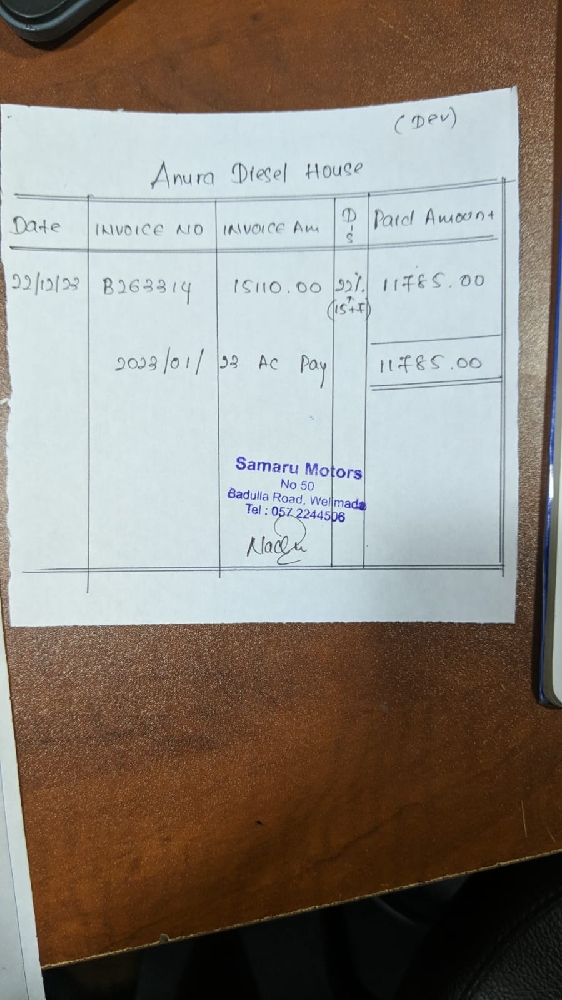 (Dev)
Anura Diesel House
Date INVOICE NO INVOICE Am Dis Paid Amount
22/12/23 B263314 15110.00 22% 11785.00
(15+7)
2023/01/23 AC Pay 11785.00
Samaru Motors
No 50
Badulla Road, Welimada
Tel : 057 2244506